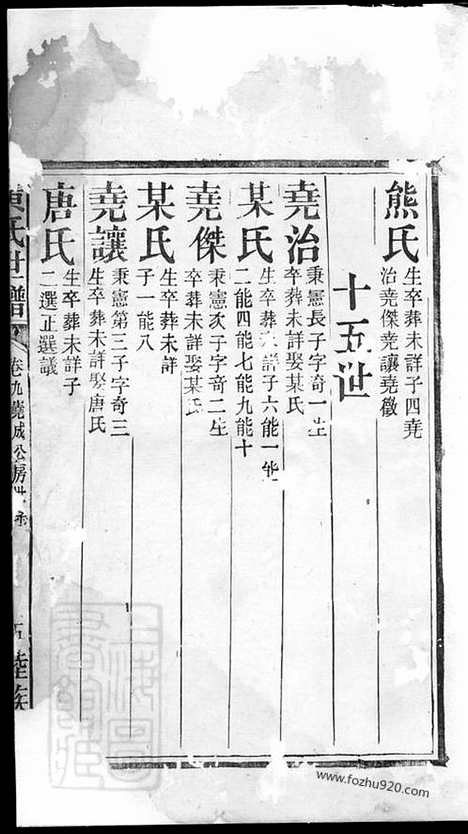 熊氏
生卒葬未詳子四堯
治堯傑堯讓堯徵
十五世
堯治
秉憲長子字奇一生
卒葬未詳娶某氏
某氏
生卒葬 詳子六能一能
二能四能七能九能十
堯傑
秉憲次子字奇二生
卒葬未詳娶某氏
某氏
生卒葬未詳
子一能八
堯讓
秉憲第三子字奇三
生卒葬未詳娶唐氏
唐氏
生卒葬未詳子
二選正選議
氏世譜
卷九堯成公房世
睦族
www.fozhu920.com